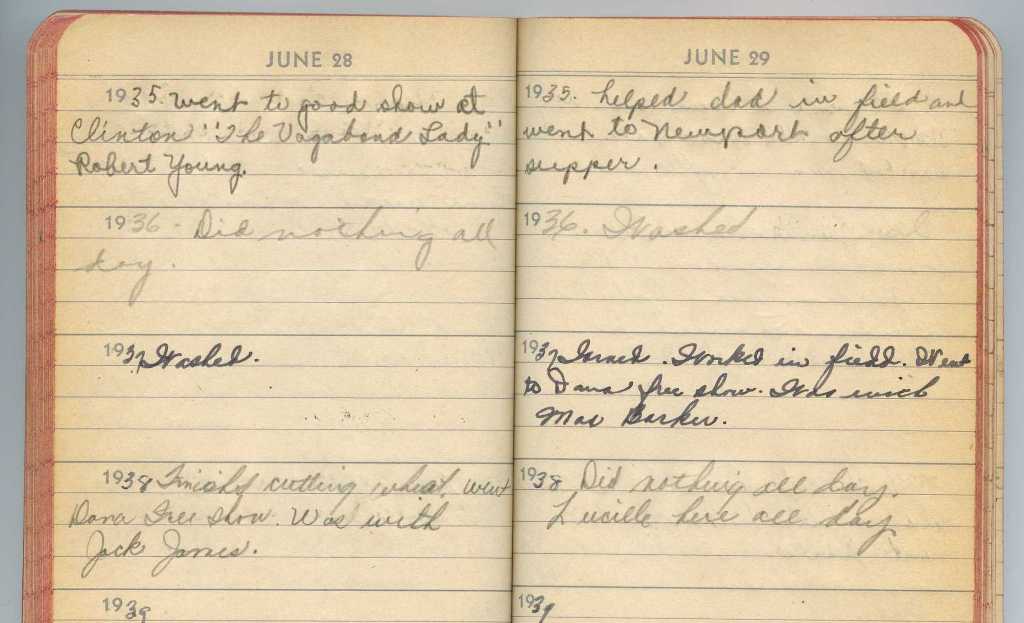 JUNE 28
1935. Went to good show at
Clinton "The Vagabond Lady"
Robert Young.
1936 - Did nothing all
day.
1937 Washed.
1938 Finished cutting wheat. went
Dana Free show. Was with
Jack James.
1939
JUNE 29
1935. helped dad in field and
went to Newport after
supper.
1936. Washed
1937 Ironed. Worked in field. Went
to Dana free show. Was with
Max Barker.
1938 Did nothing all day.
Lucille here all day
1939